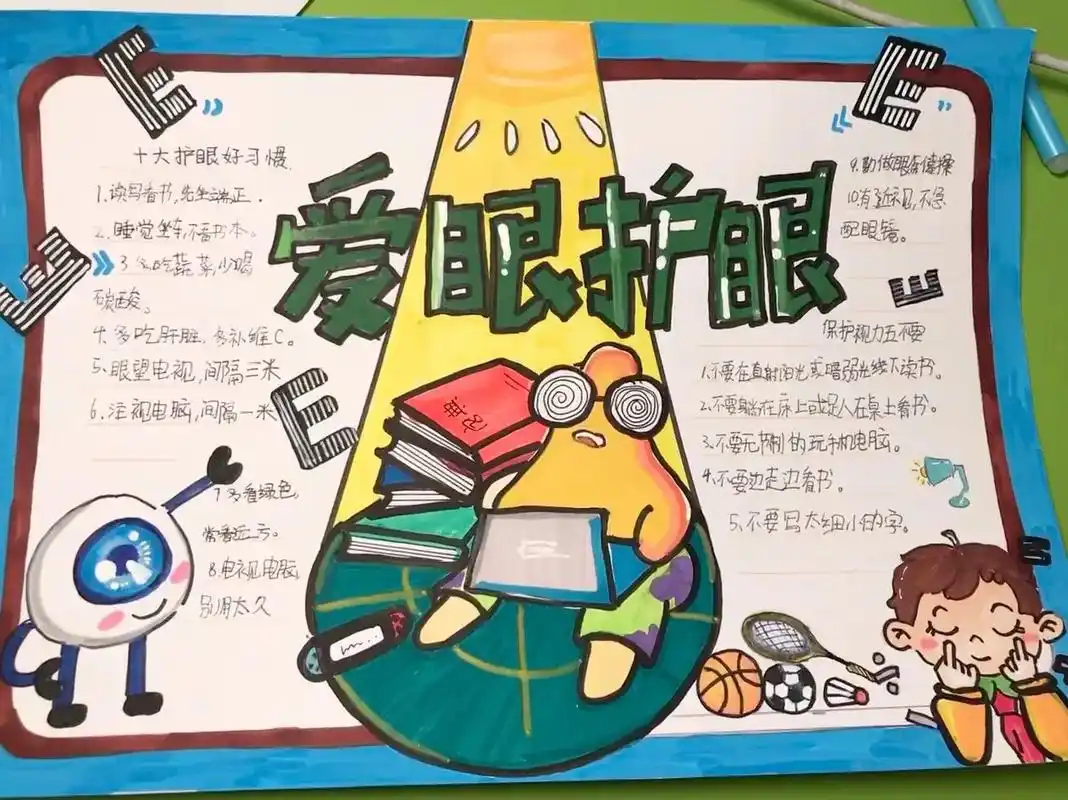 爱眼护眼
十大护眼好习惯.
1.读写看书,先坐端正.
2.睡觉坐车,不看书本。
3 多吃蔬菜,少喝
碳酸。
4.多吃肝脏,多补维C。
5.眼望电视,间隔三米
6.注视电脑,间隔一米
7多看绿色,
常看远方。
8.电视电脑,
别用太久
9.勤做眼保健操
10.有近视,不急
配眼镜。
保护视力五不要
1.不要在直射阳光或暗弱光线下读书。
2.不要躺在床上或趴在桌上看书。
3.不要无限制的玩手机电脑。
4.不要边走边看书。
5.不要写太细小的字。
E
E
E
E
E